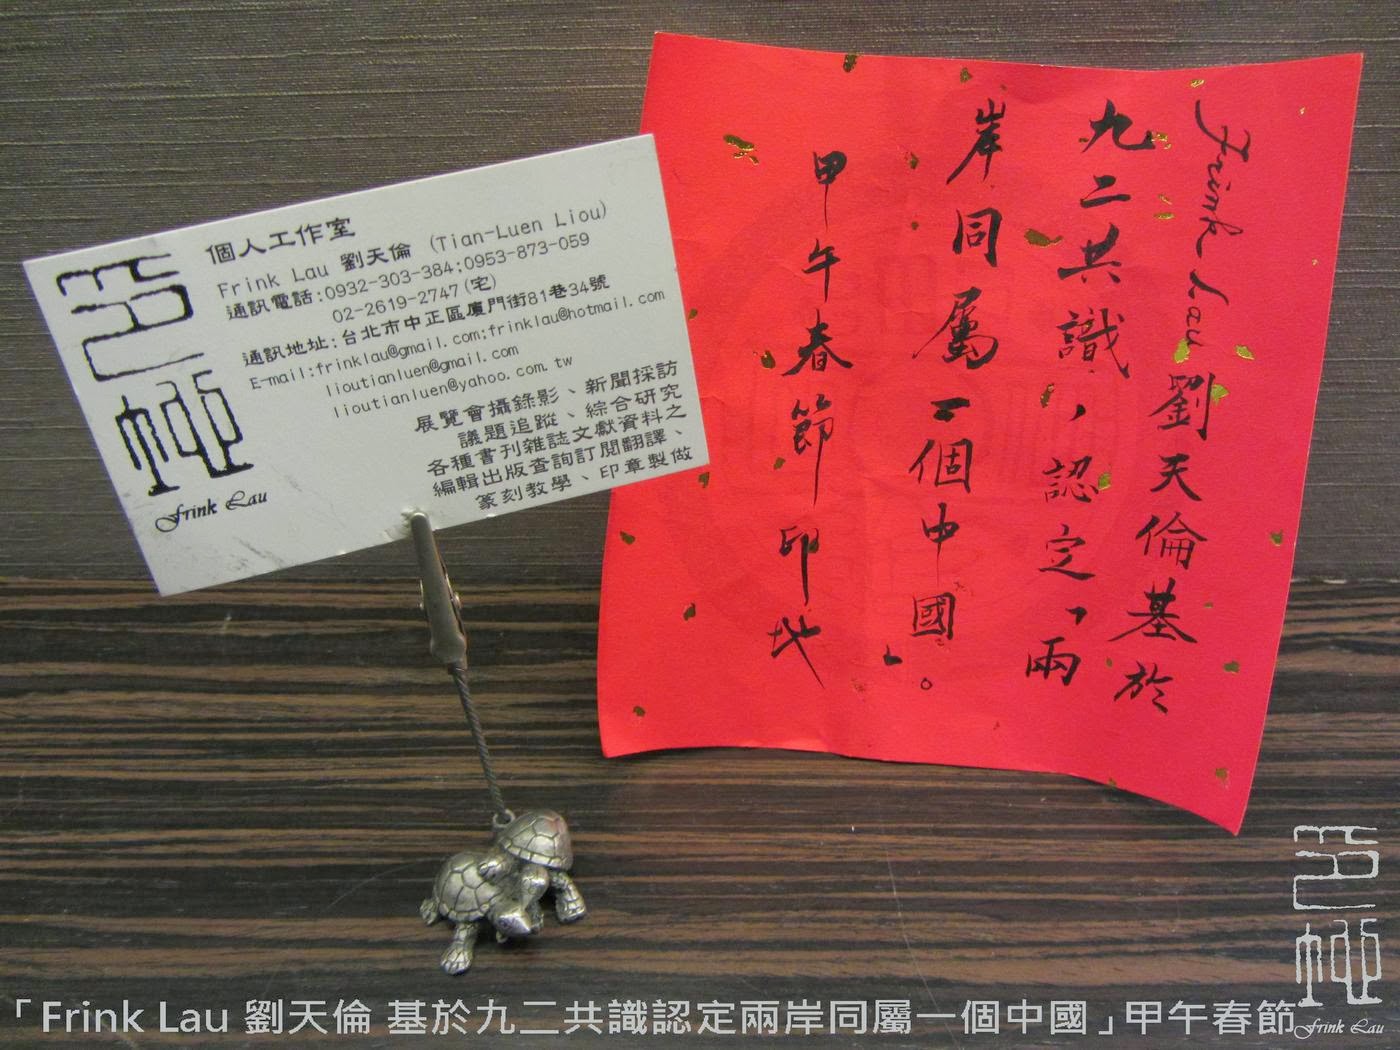 個人工作室
Frink Lau 劉天倫 (Tian-Luen Liou)
通訊電話:0932-303-384;0953-873-059
02-2619-2747(宅)
通訊地址:台北市中正區廈門街81巷34號
E-mail:frinklau@gmail.com;frinklau@hotmail.com
lioutianluen@gmail.com
lioutianluen@yahoo.com.tw
展覽會攝錄影、新聞採訪
議題追蹤、綜合研究
各種書刊雜誌文獻資料之
編輯出版查詢訂閱翻譯、
篆刻教學、印章製做
Frink Lau
Frink Lau 劉天倫基於
九二共識，認定「兩
岸同屬一個中國」。
甲午春節印地
「Frink Lau 劉天倫 基於九二共識認定兩岸同屬一個中國」甲午春節
Frink Lau